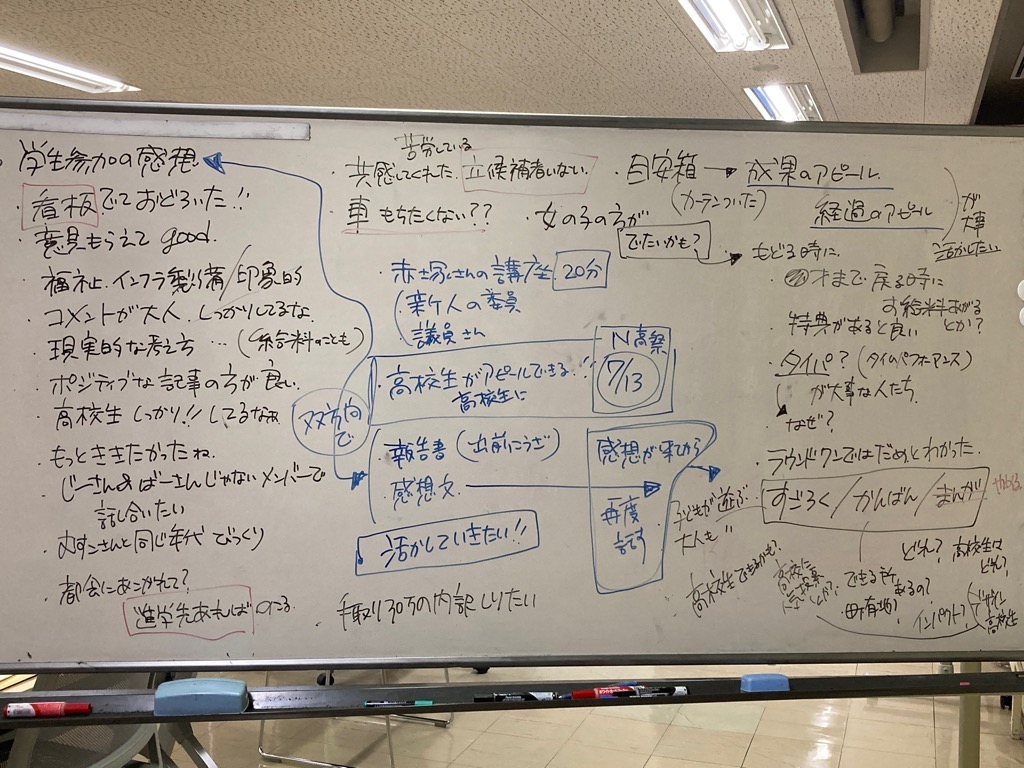 学生参加の感想
・看板でておどろいた!!
・意見もらえて good.
・福祉.インフラ整備/印象的
・コメントが大人.しっかりしてるな.
・現実的な考え方…(給料のことも)
・ポジティブな記事の方が良い.
・高校生 しっかり!!してるなぁ
・もっとききたかったね.
・じーさん&ばーさんじゃないメンバーで
話し合いたい
さんと同じ年代 びっくり
・都会にあこがれて?
進学先あれば のこる
苦労している
・共感してくれた.立候補者いない.
・車 もちたくない??
・女の子の方が
でたいかも?
・赤塚さんの講座 20分
新人の委員
議員さん
N高祭
7/13
・高校生がアピールできる!!
高校生に
双方向で
・報告書(出前こうざ)
・感想文
感想が来てから
再度
話す
・活かしていきたい!!
手取り30万の内訳しりたい
・目安箱→成果のアピール.
(カーテンついた)
経過のアピール
が
大事
活かしたい
・もどる時に.
才まで戻る時に
お給料あがる
とか?
特典があると良い
・タイパ?(タイムパフォーマンス)
が大事な人たち.
なぜ?
・ラウンドワンではだめとわかった.
すごろく/かんばん/まんが
子どもが遊ぶ
大人も"
高校生できるかも?
高校に
人気投票
とか?
できる所
あるの?
町有地?
どれ?高校生は
どれ?
インパクト?
デザイン
高校生